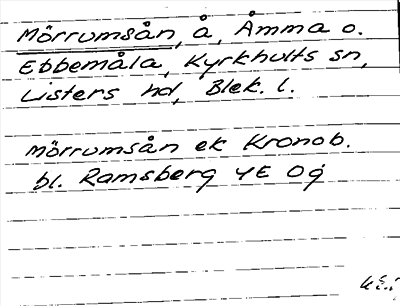 Mörrumsån, å, Åmma o.
Ebbemåla, Kyrkhults sn,
Listers hd, Blek. l.
Mörrumsån ek Kronob.
bl. Ramsberg 4E Og